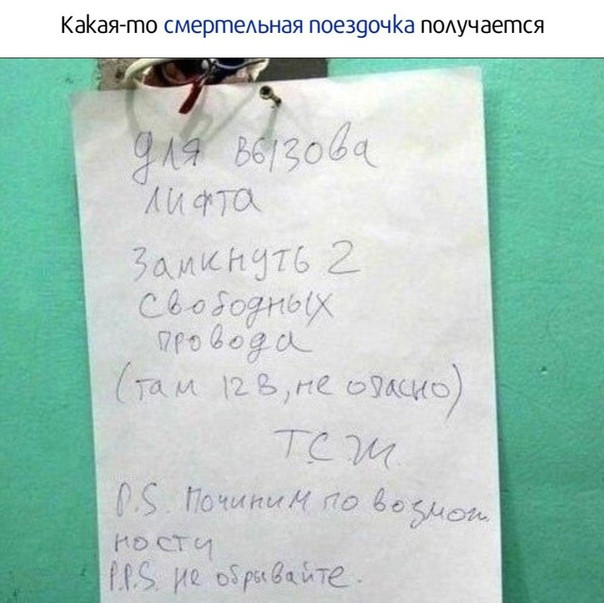 Какая-то смертельная поездочка получается
Для вызова
лифта
Замкнуть 2
свободных
провода
(там 12 В, не опасно)
ТСЖ
P.S. Починим по возмож
ности
P.P.S. не обрывайте.